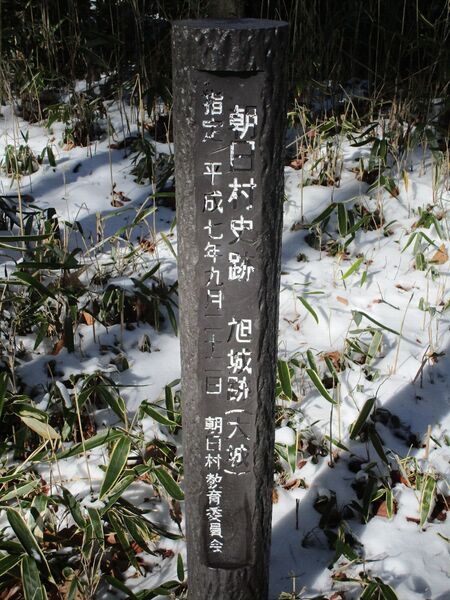 朝日村史跡 旭城跡(大城)
指定 平成七年九月二十二日 朝日村教育委員会